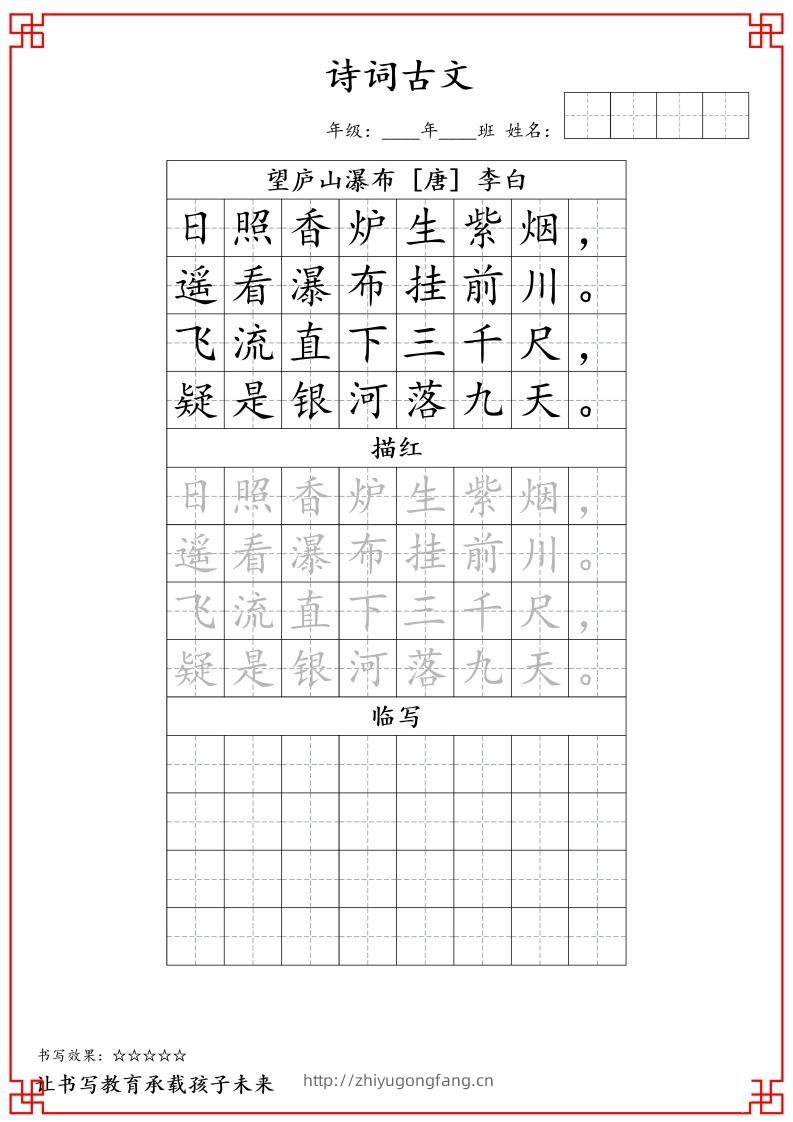 诗词古文
年级：____年____班 姓名：
望庐山瀑布［唐］李白
日照香炉生紫烟，
遥看瀑布挂前川。
飞流直下三千尺，
疑是银河落九天。
描红
日照香炉生紫烟，
遥看瀑布挂前川。
飞流直下三千尺，
疑是银河落九天。
临写
书写效果：☆☆☆☆☆
让书写教育承载孩子未来 http://zhiyugongfang.cn